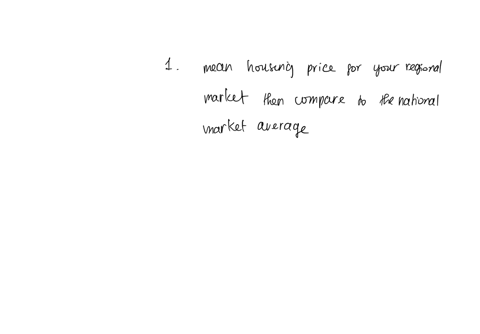 1. mean housing price for your regional
market then compare to the national
market average